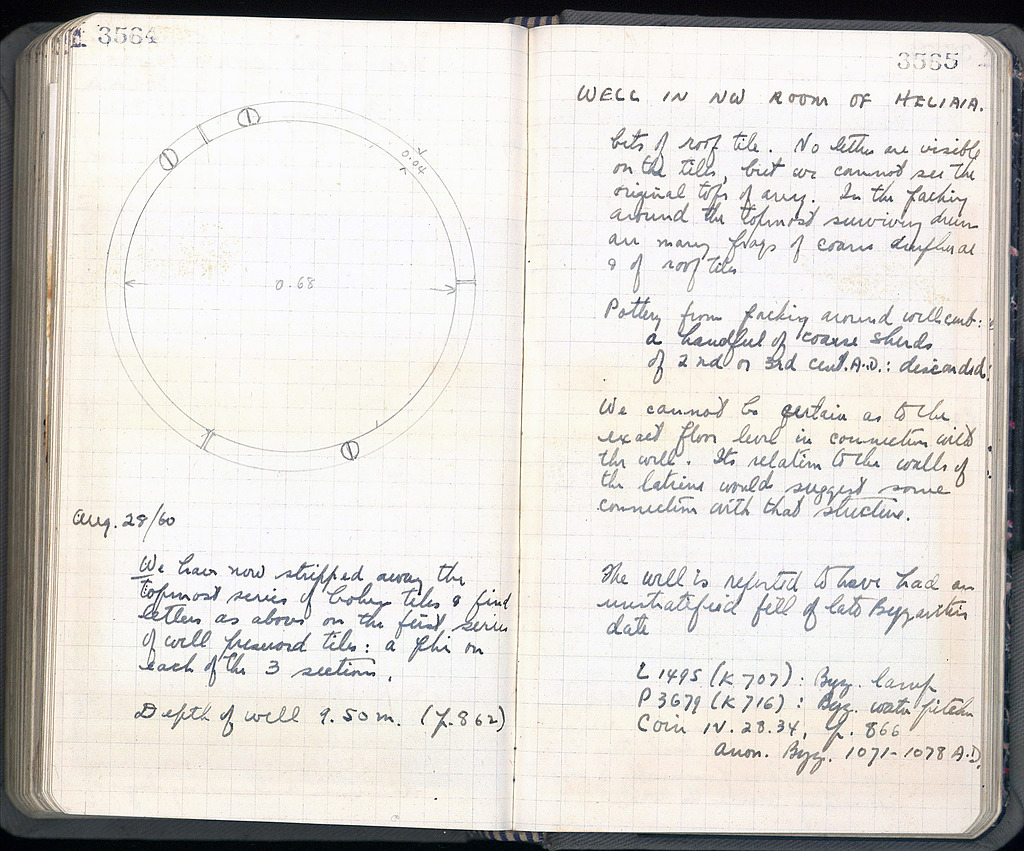 3564
0.04
0.68
Aug. 28/60
We have now stripped away the
topmost series of broken tiles & find
letters as above on the first series
of well preserved tiles: a phi on
each of the 3 sections.
Depth of well 9.50 m. (p. 862)
3565
WELL IN NW ROOM OF HELIAIA.
bits of roof tile. No letters are visible
on the tiles, but we cannot see the
original tops of any. In the packing
around the topmost surviving drum
are many frags of coarse amphorae
& of roof tiles
Pottery from packing around well curb:
a handful of coarse sherds
of 2nd or 3rd cent. A.D.: discarded.
We cannot be certain as to the
exact floor level in connection with
the well. Its relation to the walls of
the latrine would suggest some
connection with that structure.
The well is reported to have had an
unstratified fill of late Byzantine
date
L 1495 (K 707): Byz. lamp
P 3679 (K 716): Byz. water pitcher
Coin IV.28.34, p. 866
anon. Byz. 1071-1078 A.D.